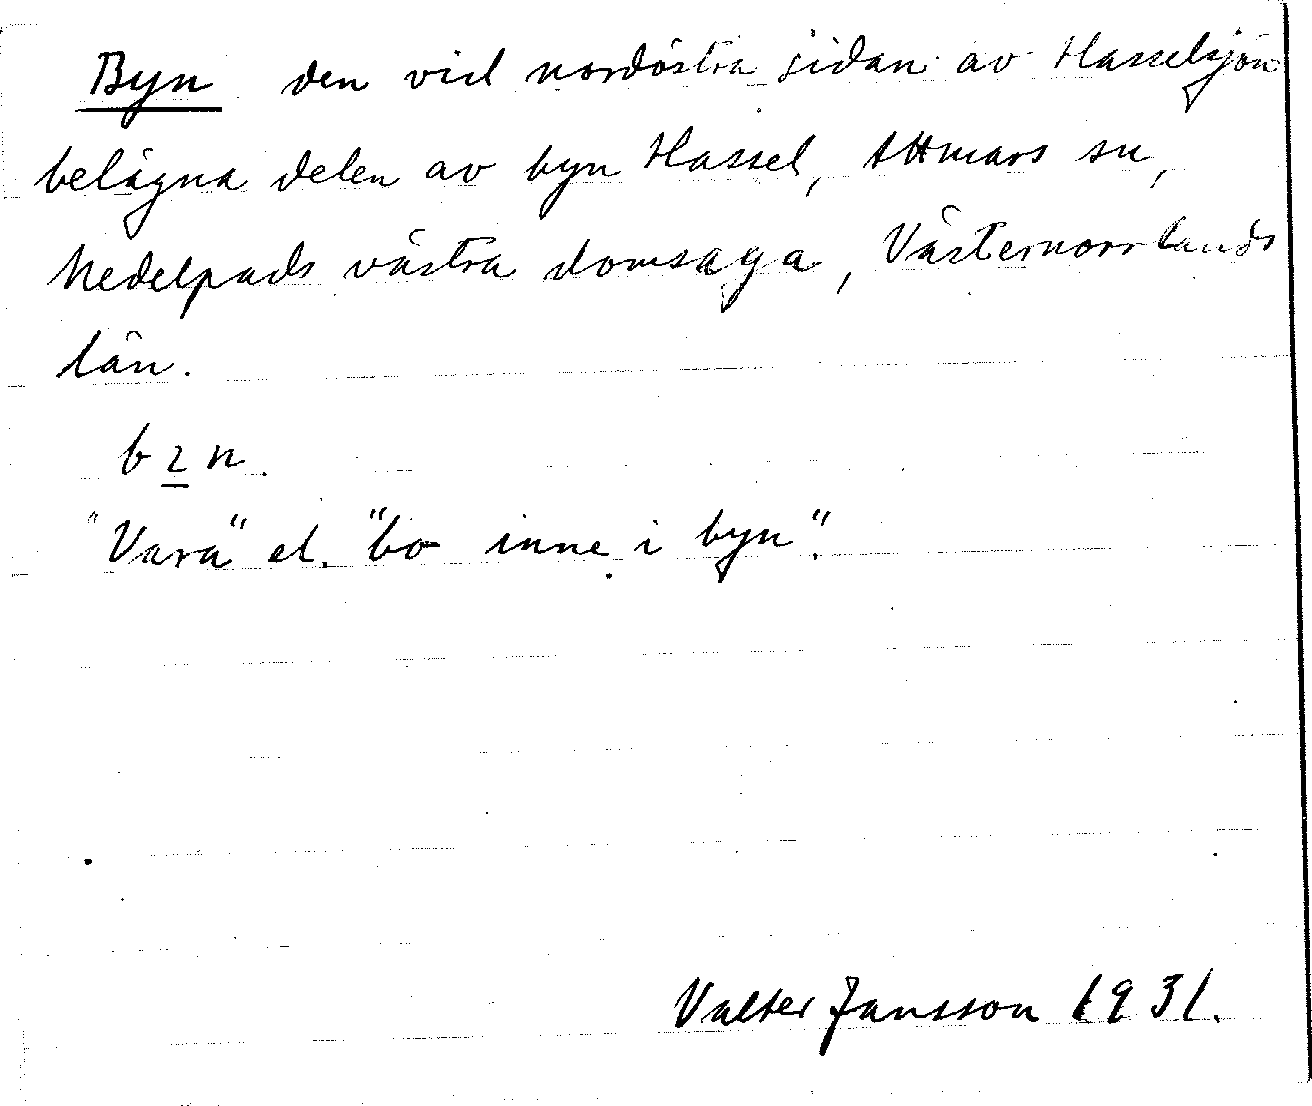 Byn den vid nordöstra sidan av Hasselsjön
belägna delen av byn Hassel, Attmars sn,
Medelpads västra domsaga, Västernorrlands
län.
bɿn.
"Vara" el. "bo inne i byn".
Valter Jansson 1931.